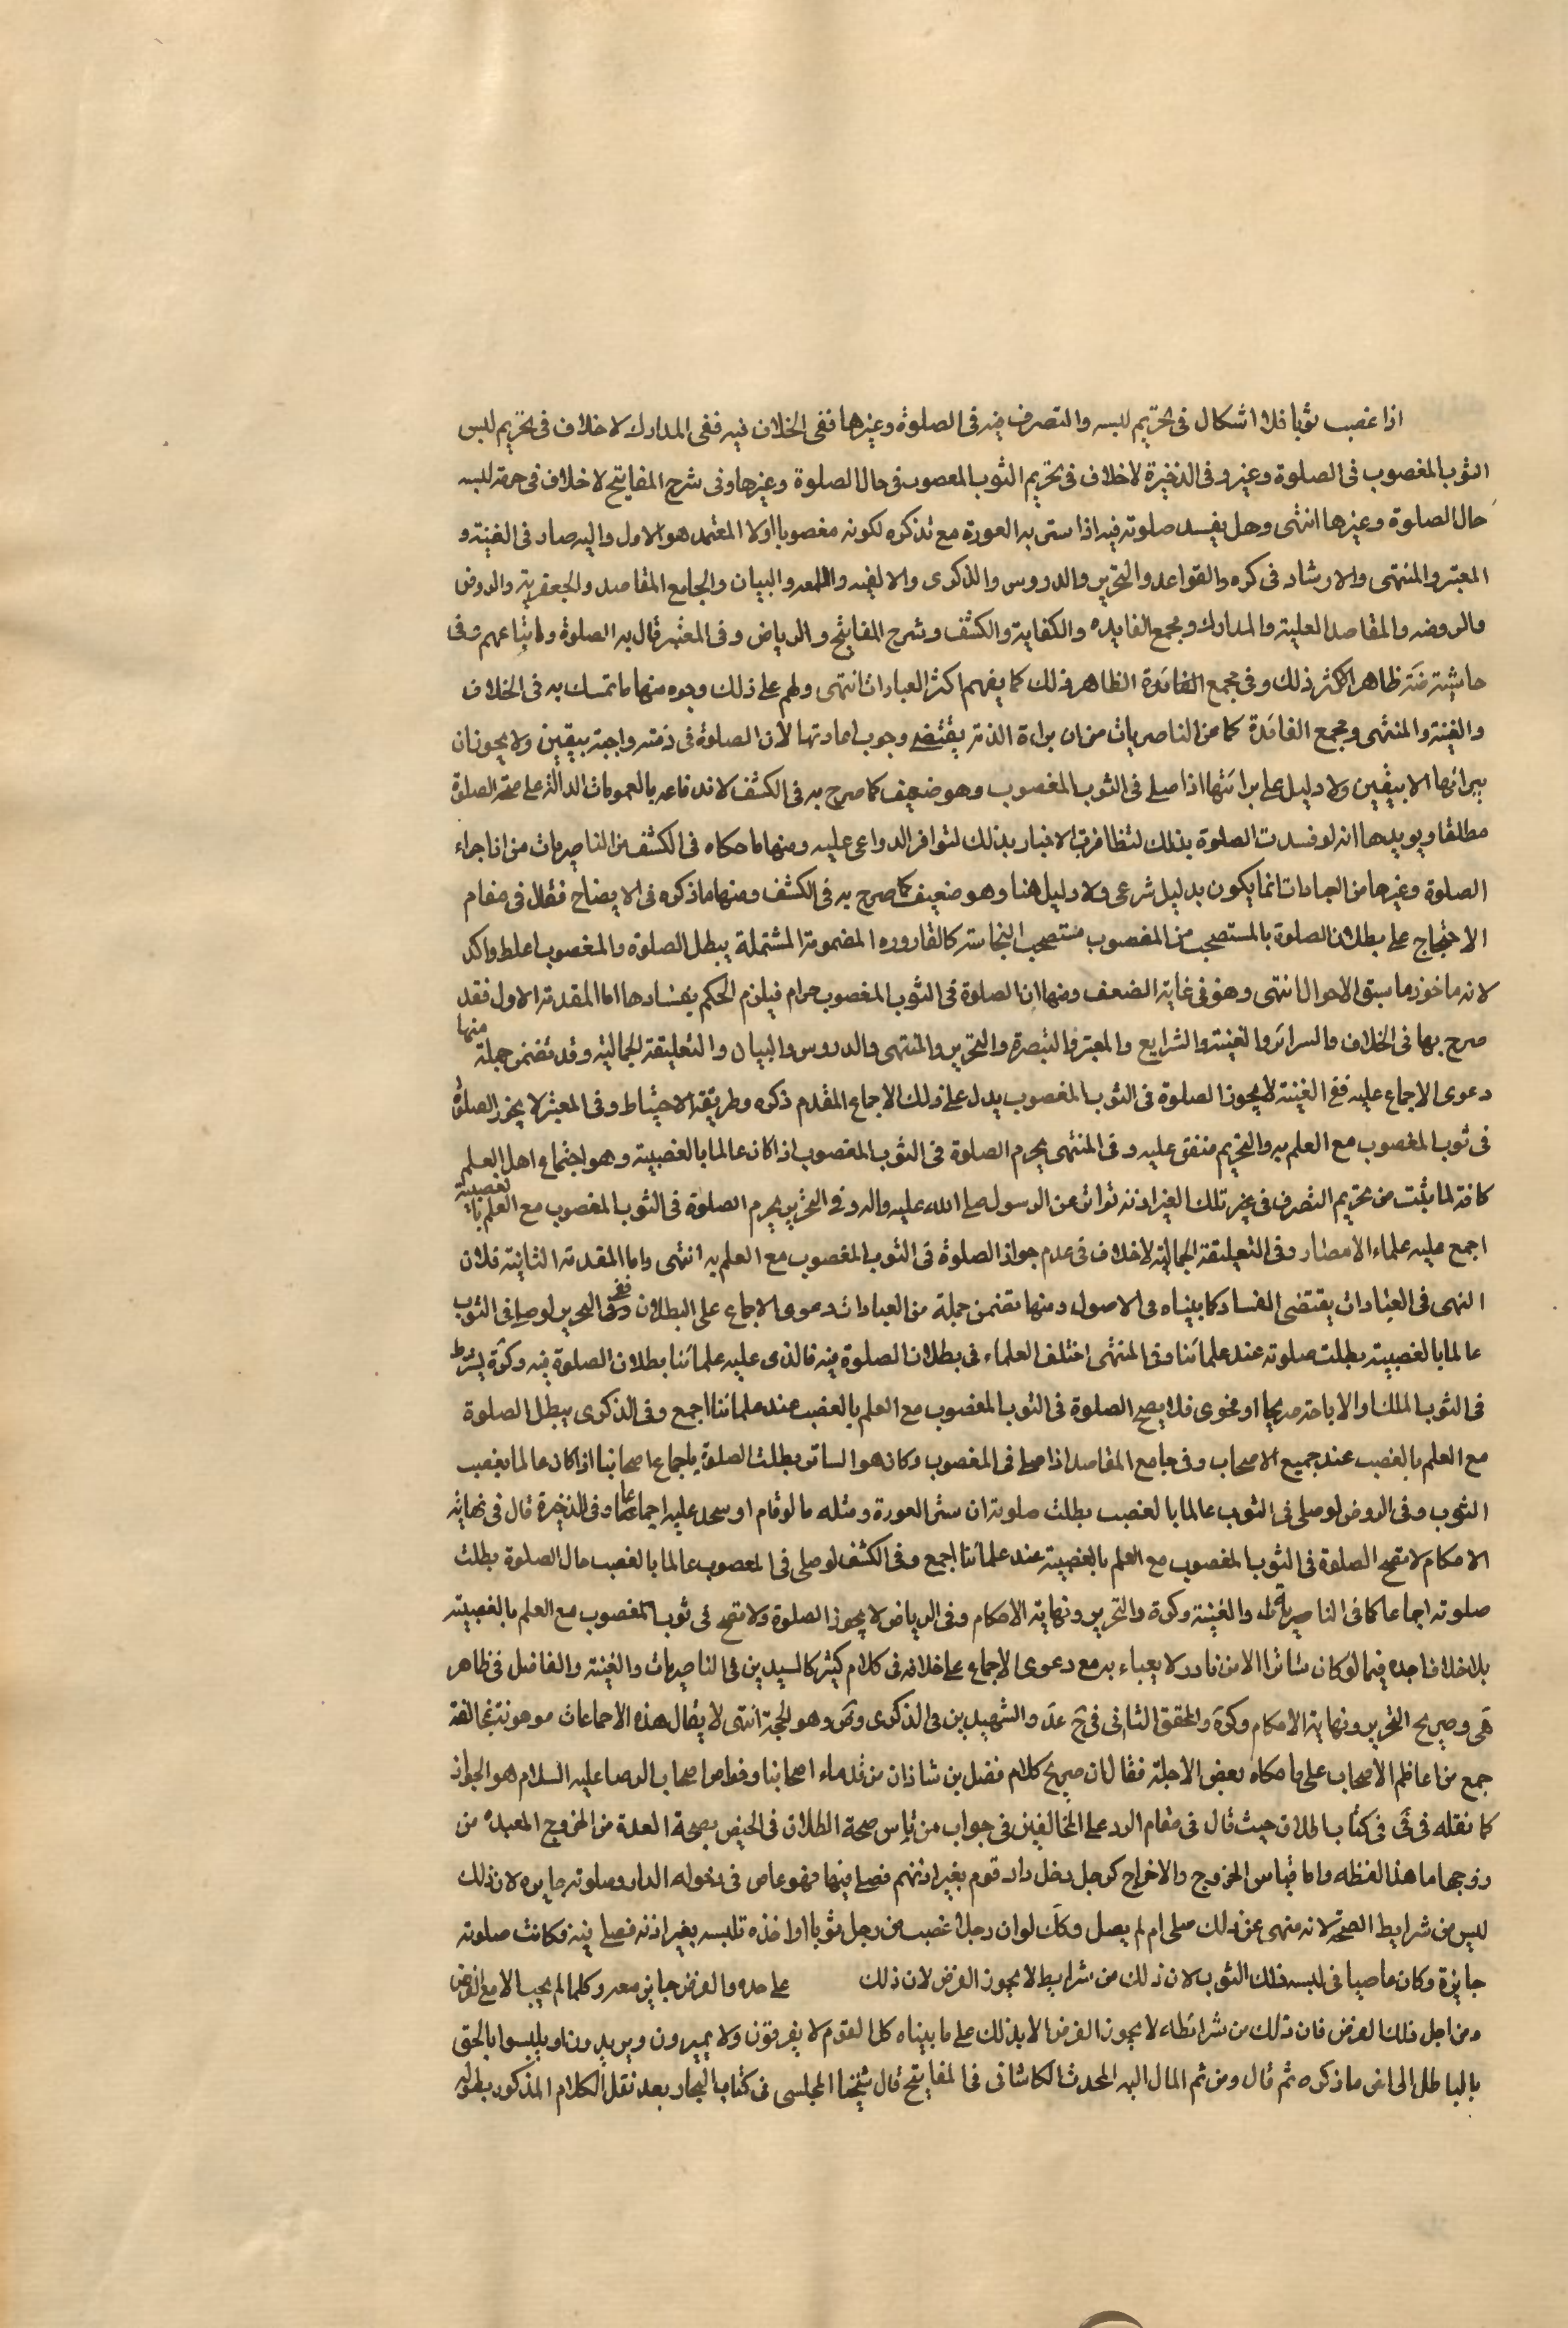 اذا غصب ثوبا فلا اشكال فى تحريم لبسه والتصرف فيه فى الصلوة وغيرها ففى الخلاف فيه ففى المدارك لا خلاف فى تحريم لبس
الثوب المغصوب فى الصلوة وغيره وفى الذخيرة لا خلاف فى تحريم الثوب المغصوب فى حال الصلوة وغيرها وفى شرح المفاتيح لا خلاف فى حرمة لبسه
حال الصلوة وغيرها انتهى وهل يفسد صلوته فيه اذا ستر به العورة مع تذكره لكونه مغصوبا اولا المعتمد هو الاول واليه صار فى الغنية و
المعتبر والمنتهى والارشاد فى كره والقواعد والتحرير والدروس والذكرى والالفيه واللمعه والبيان والجامع المقاصد والجعفرية والروض
والروضه والمقاصد العلية والمدارك ومجمع الفايده والكفاية والكشف وشرح المفاتيح والرياض وفى المعتبر قال به الصلوة واتباعهم وفى
حاشيته ظاهر الاكثر ذلك وفى مجمع الفائدة الظاهر ذلك كما يفهم اكثر العبارات انتهى ولهم على ذلك وجوه منها ما تمسك به فى الخلاف
والغنية والمنتهى ومجمع الفائدة كما عن الناصريات من ان براءة الذمة يقتضى وجوب اعادتها لان الصلوة فى ذمته واجبة بيقين ولا يجوز ان
يبرائها الا بيقين ولا دليل على برائتها اذا صلى فى الثوب المغصوب وهو ضعيف كما صرح به فى الكشف لاندفاعه بالعمومات الدالة على صحة الصلوة
مطلقا ويويدها انه لو فسدت الصلوة بذلك لتظافرت الاخبار بذلك لتوافر الدواعى عليه ومنها ما حكاه فى الكشف عن الناصريات من ان اجزاء
الصلوة وغيرها من العبادات انما يكون بدليل شرعى ولا دليل هنا وهو ضعيف كما صرح به فى الكشف ومنها ما ذكره فى الايضاح فقال فى مقام
الاحتجاج على بطلان الصلوة بالمستصحب من المغصوب مستصحب النجاسة كالقاروره المضمومة المشتملة يبطل الصلوة والمغصوب اغلظ واكد
لانه ماخوذ ما سبق الاحوال انتهى وهو فى غاية الضعف ومنها ان الصلوة فى الثوب المغصوب حرام فيلزم الحكم بفسادها اما المقدمة الاولى فقد
صرح بها فى الخلاف والسرائر والغنية والشرايع والمعتبر والتبصرة والتحرير والمنتهى والدروس والبيان والتعليقة الجمالية وقد تضمن جملة منها
دعوى الاجماع عليه ففى الغنية لا يجوز الصلوة فى الثوب المغصوب يدل على ذلك الاجماع المقدم ذكره وطريقة الاحتياط وفى المعتبر لا يجوز الصلوة
فى ثوب المغصوب مع العلم به والتحريم متفق عليه وفى المنتهى يحرم الصلوة فى الثوب المغصوب اذا كان عالما بالغصبية وهو اجماع اهل العلم
كافة لما يثبت من تحريم التصرف فى غير تلك الغير اذنه تواتر عن الرسول صلى الله عليه واله وفى التحرير يحرم الصلوة فى الثوب المغصوب مع العلم بالغصبية
اجمع عليه علماء الامصار وفى التعليقة الجمالية لا خلاف فى عدم جواز الصلوة فى الثوب المغصوب مع العلم به انتهى واما المقدمة الثانية فلان
النهى فى العبادات يقتضى الفساد كما بيناه فى الاصول ومنها تضمن جملة من العبادات دعوى الاجماع على البطلان ففى التحرير لو صلى فى الثوب
عالما بالغصبية بطلت صلوته عند علمائنا وفى المنتهى اختلف العلماء فى بطلان الصلوة فيه فالذى عليه علمائنا بطلان الصلوة فيه وكرة يشترط
فى الثوب الملك او الاباحة صريحا او فحوى فلا يصح الصلوة فى الثوب المغصوب مع العلم بالغصب عند علمائنا اجمع وفى الذكرى يبطل الصلوة
مع العلم بالغصب عند جميع الاصحاب وفى جامع المقاصد اذا صلى فى المغصوب وكان هو الساتر بطلت الصلوة باجماع اصحابنا اذا كان عالما بغصب
الثوب وفى الروض لو صلى فى الثوب عالما بالغصب بطلت صلوته ان ستر العورة ومثله ما لو قام او سجد عليه اجماعا وفى الذخيرة قال فى نهاية
الاحكام لا تصح الصلوة فى الثوب المغصوب مع العلم بالغصبية عند علمائنا اجمع وفى الكشف لو صلى فى المغصوب عالما بالغصب حال الصلوة بطلت
صلوته اجماعا كما فى الناصرية والغنية وكرة والتحرير ونهاية الاحكام وفى الرياض لا يجوز الصلوة ولا تصح فى ثوب المغصوب مع العلم بالغصبية
بلا خلاف اجده فيما لو كان ساترا الا من نادر لا يعباء به مع دعوى الاجماع على خلافه فى كلام كثير كالسيدين فى الناصريات والغنية والفاضل فى ظاهر
هى وصريح التحرير ونهاية الاحكام وكرة والمحقق الثانى فى والشهيدين فى الذكرى وض وهو الحجة انتهى لا يقال هذه الاجماعات موهونة بمخالفة
جمع من اعاظم الاصحاب على ما حكاه بعض الاجلة فقال ان صريح كلام فضل بن شاذان من قدماء اصحابنا وخواص اصحاب الرضا عليه السلام هو الجواز
كما نقله فى فى كتاب الطلاق حيث قال فى مقام الرد على المخالفين فى جواب من قاس صحة الطلاق فى الحيض بصحة العدة من الخروج المعيدة من
زوجها ما هذا لفظه واما قياس الخروج والاخراج كرجل دخل دار قوم بغير اذنهم فصلى فيها فهو عاص فى دخوله الدار وصلوته جايزه لان ذلك
ليس من شرايط الصحة لانه منهى عن ذلك صلى ام لم يصل وكك لو ان رجلا غصب من رجل ثوبا او اخذه فلبسه بغير اذنه فصلى فيه فكانت صلوته
جايزة وكان عاصيا فى لبسه ذلك الثوب لان ذلك من شرايط لا يجوز الفرض لان ذلك على حده والفرض جايز معه وكلما لم يجب الا مع الفرض
ومن اجل ذلك الفرض فان ذلك من شرائطه لا يجوز الفرض الا بذلك على ما بيناه كل القوم لا يفرقون ولا يميزون ويريدون ان يلبسوا الحق
بالباطل الى اخر ما ذكره ثم قال ومن ثم المال اليه المحدث الكاشانى فى المفاتيح قال شيخنا المجلسى فى كتاب البحار بعد نقل الكلام المذكور بطوله